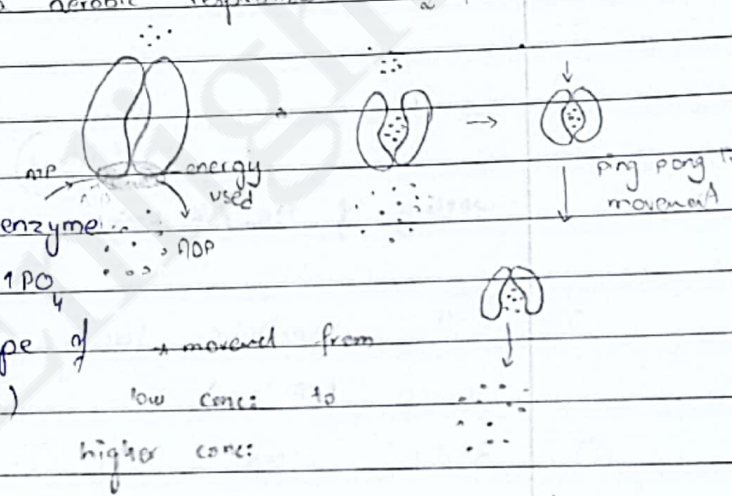 aerobic
ATP
energy
used
ADP
enzyme
PO4
ping pong
movement
pe of
from
low conc: to
higher conc: